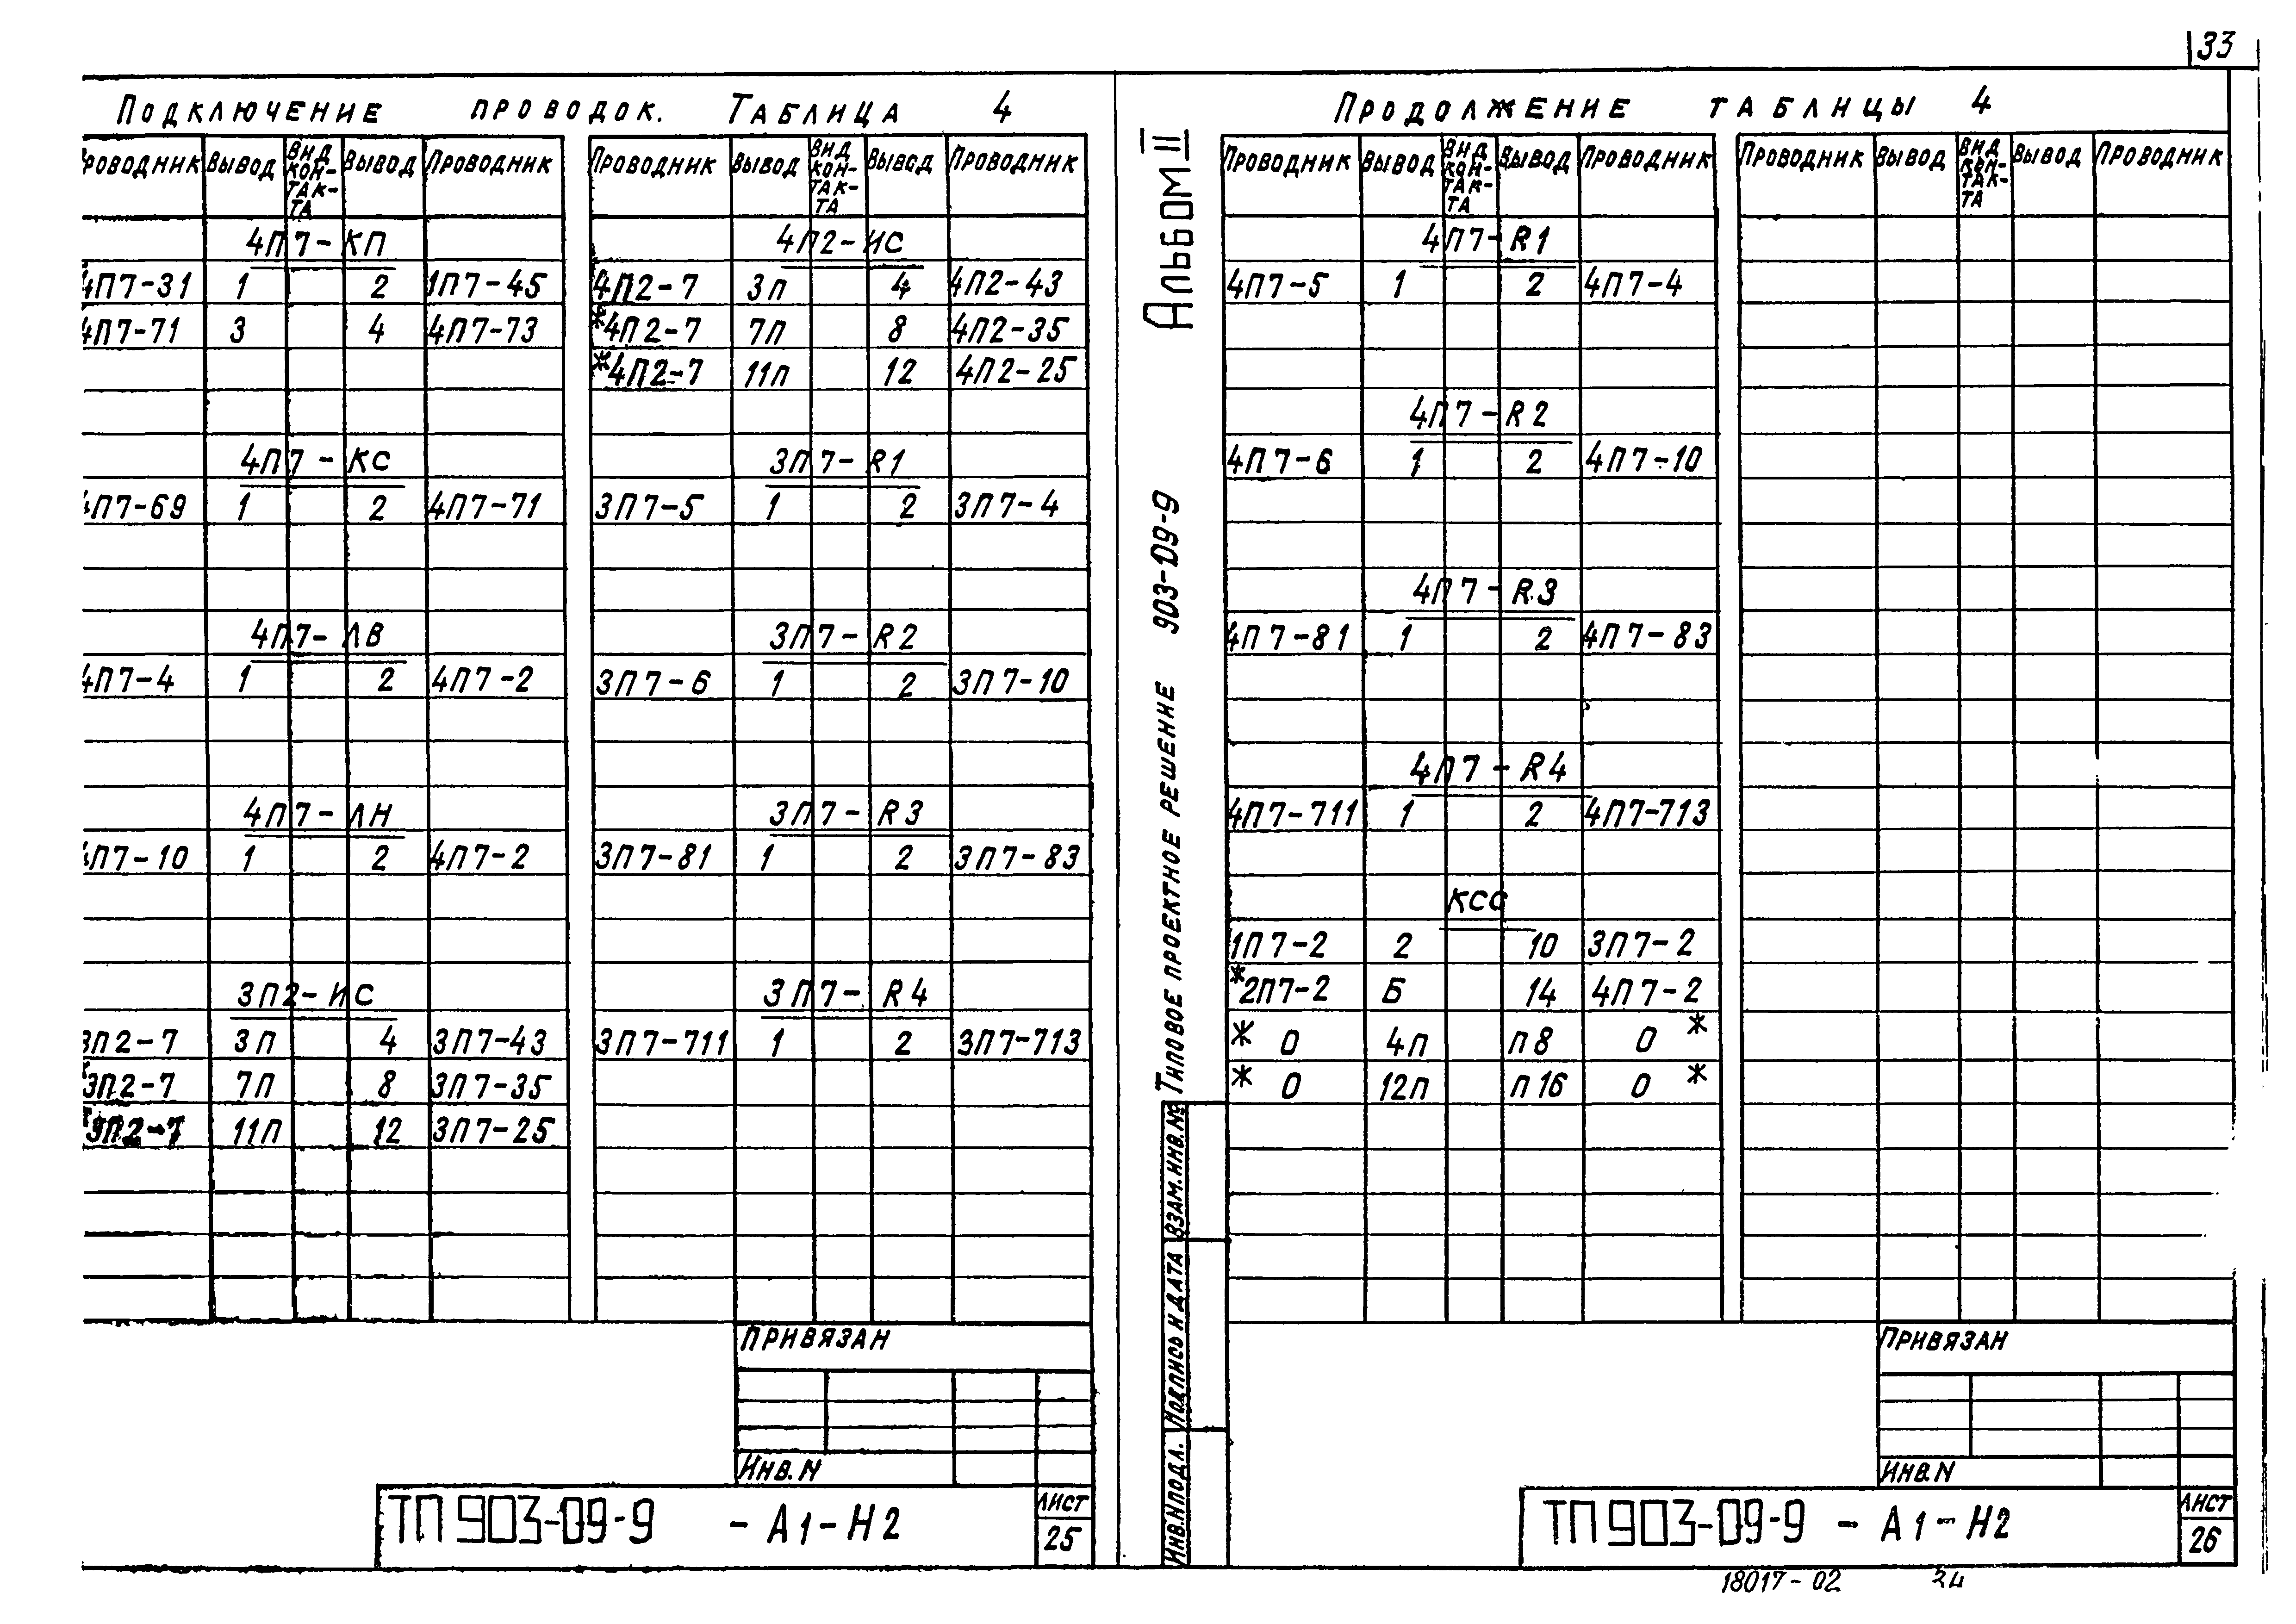 33
Подключение проводок. Таблица 4
Проводник Вывод Вид кон-так-та Вывод Проводник Проводник Вывод Вид кон-так-та Вывод Проводник
4П7-КП 4П2-ИС
4П7-31 1 2 1П7-45 4П2-7 3п 4 4П2-43
4П7-71 3 4 4П7-73 *4П2-7 7п 8 4П2-35
*4П2-7 11п 12 4П2-25
4П7-КС 3П7-R1
4П7-69 1 2 4П7-71 3П7-5 1 2 3П7-4
4П7-ЛВ 3П7-R2
4П7-4 1 2 4П7-2 3П7-6 1 2 3П7-10
4П7-ЛН 3П7-R3
4П7-10 1 2 4П7-2 3П7-81 1 2 3П7-83
3П2-ИС 3П7-R4
3П2-7 3п 4 3П7-43 3П7-711 1 2 3П7-713
*3П2-7 7п 8 3П7-35
*3П2-7 11п 12 3П7-25
Привязан
Инв.N
ТП 903-09-9 - А1-Н2
Лист
25
Альбом II
Типовое проектное решение 903-09-9
Взам.инв.№
Подпись и дата
Инв.Nподл.
Продолжение таблицы 4
Проводник Вывод Вид кон-так-та Вывод Проводник Проводник Вывод Вид кон-так-та Вывод Проводник
4П7-R1
4П7-5 1 2 4П7-4
4П7-R2
4П7-6 1 2 4П7-10
4П7-R3
4П7-81 1 2 4П7-83
4П7-R4
4П7-711 1 2 4П7-713
КСС
1П7-2 2 10 3П7-2
*2П7-2 Б 14 4П7-2
* 0 4п п8 0 *
* 0 12п п16 0 *
Привязан
Инв.N
ТП 903-09-9 - А1-Н2
Лист
26
18017-02 34